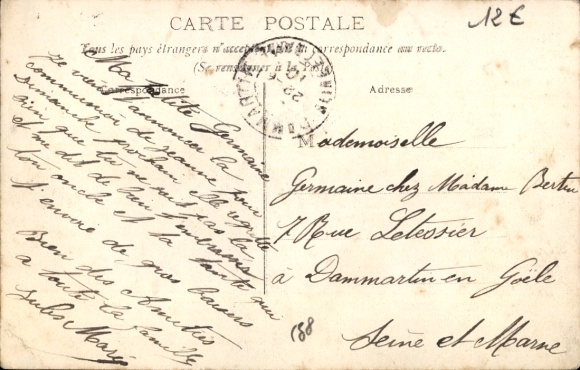 CARTE POSTALE
12€
Tous les pays étrangers n'acceptent pas la correspondance au recto.
(Se renseigner à la Poste)
Correspondance
Adresse
Ma petite Germaine
Je viens t'annoncer la
communion de pour
Dimanche prochain elle regrette
bien que tu ne sois pas là
et me dit de bien t'embrasser
ton oncle et ta tante qui
t'envoie de gros baisers
Bien des Amitiés
à toute la famille
Jules Marie
Mademoiselle
Germaine chez Madame Bertin
7 Rue Letessier
à Dammartin en Goële
Seine et Marne
188